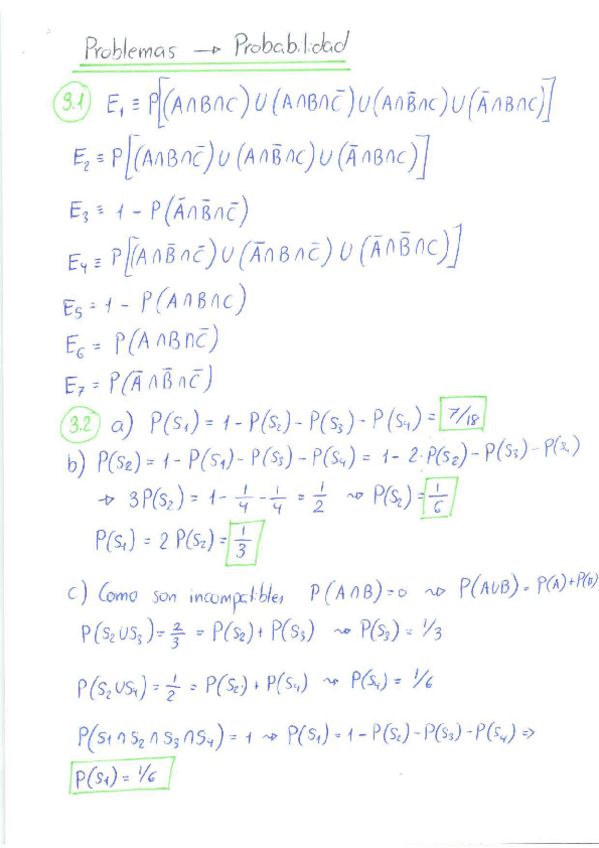 Problemas → Probabilidad
3.1 E₁ ≡ P[(A∩B∩C) ∪ (A∩B∩C̄) ∪ (A∩B̄∩C) ∪ (Ā∩B∩C)]
E₂ ≡ P[(A∩B∩C̄) ∪ (A∩B̄∩C) ∪ (Ā∩B∩C)]
E₃ ≡ 1 - P(Ā∩B̄∩C̄)
E₄ ≡ P[(A∩B̄∩C̄) ∪ (Ā∩B∩C̄) ∪ (Ā∩B̄∩C)]
E₅ = 1 - P(A∩B∩C)
E₆ = P(A∩B∩C̄)
E₇ = P(Ā∩B̄∩C̄)
3.2 a) P(S₁) = 1 - P(S₂) - P(S₃) - P(S₄) = 7/18
b) P(S₂) = 1 - P(S₁) - P(S₃) - P(S₄) = 1 - 2·P(S₂) - P(S₃) - P(S₄)
→ 3P(S₂) = 1 - 1/4 - 1/4 = 1/2 ⇝ P(S₂) = 1/6
P(S₁) = 2 P(S₂) = 1/3
c) Como son incompatibles P(A∩B)=0 ⇝ P(A∪B) = P(A)+P(B)
P(S₂∪S₃) = 2/3 = P(S₂) + P(S₃) ⇝ P(S₃) = 1/3
P(S₂∪S₄) = 1/2 = P(S₂) + P(S₄) ⇝ P(S₄) = 1/6
P(S1∩S₂∩S₃∩S₄) = 1 ⇝ P(S₁) = 1 - P(S₂) - P(S₃) - P(S₄) ⇒
P(S₁) = 1/6